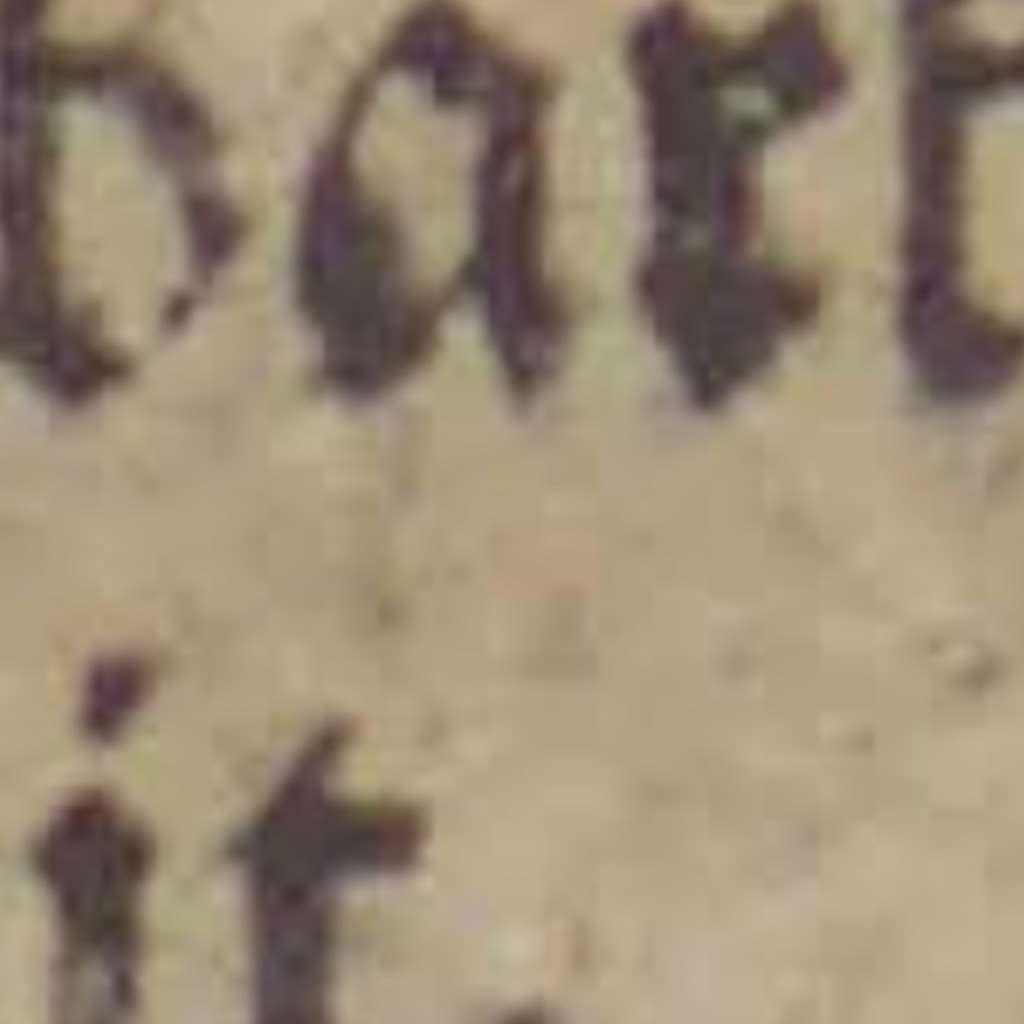 bart
it